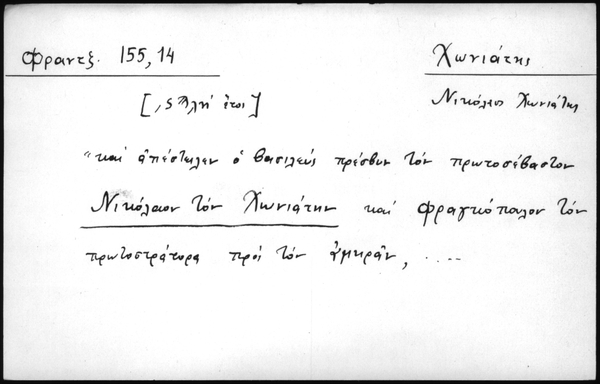 Φραντζ. 155, 14
Χωνιάτης
Νικόλαος Χωνιάτης
"καί ἀπέστειλεν ὁ βασιλεύς πρέσβυν τόν πρωτοσέβαστον
Νικόλαον τόν Χωνιάτην καί Φραγκόπουλον τόν
πρωτοστράτορα πρός τόν ἀμηρᾶν, ....